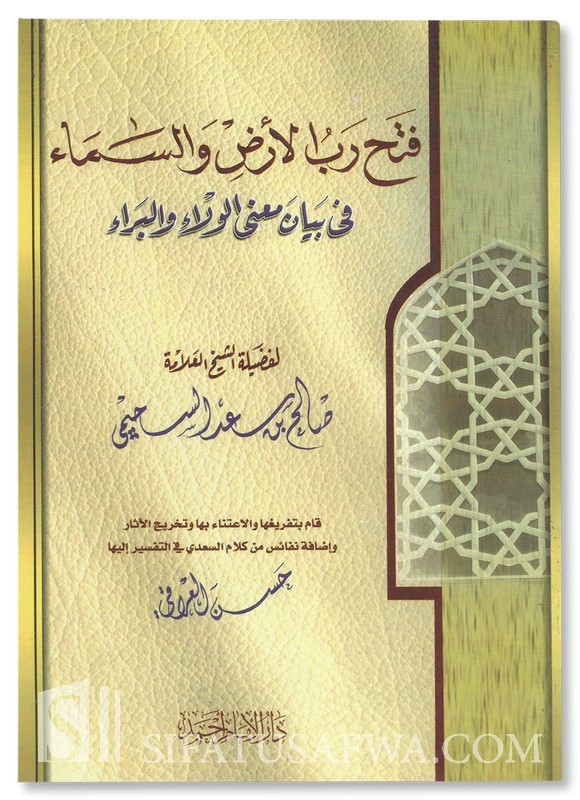 فَتَح رَبُ الأرضِ وَالسَمَاء
في بَيَان معنى الولاء والبراء
لفضيلة الشيخ العلامة
صالح بن سعد السحيمي
قام بتفريغها والاعتناء بها وتخريج الآثار
وإضافة نفائس من كلام السعدي في التفسير إليها
حسن العراقي
دار الإمام أحمد
SIFATUSAFWA.COM